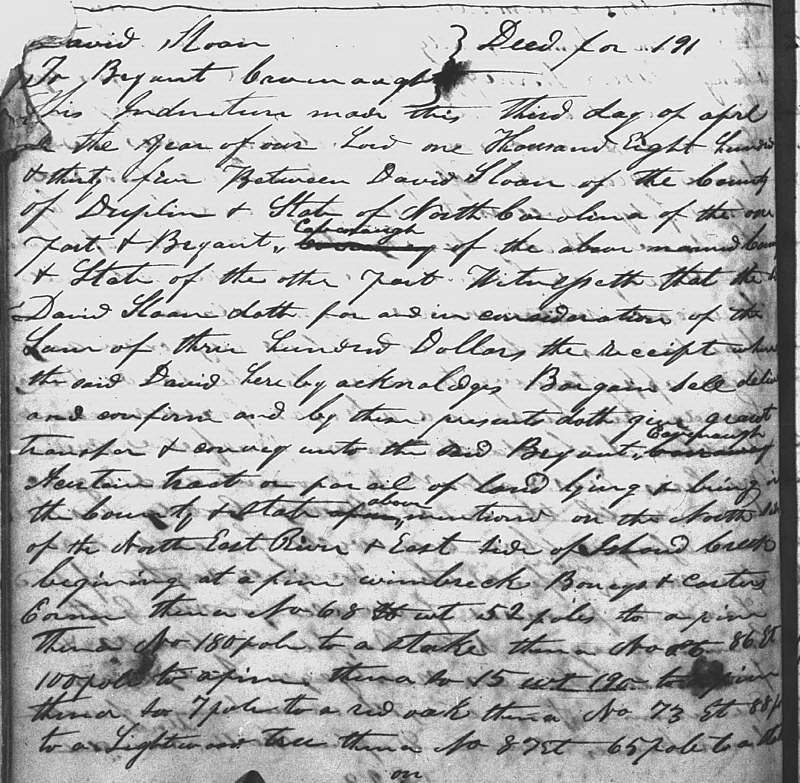 David Sloan } Deed for 191
To Bryant Cavanaugh
This Indenture made this third day of aprl
the year of our Lord one Thousand Eight hundred
& thirty five Between David Sloan of the County
of Duplin & State of North Carolina of the one
part & Bryant Cavanaugh of the above named
& State of the other part Witnesseth that the
David Sloan doth for and in consideration of the
Sum of three hundred Dollars the receipt
the said David hereby acknoldges Bargain Sell
and confirm and by these presents doth give grant
transfer & convey unto the said Bryant Cavanaugh
A certain tract or parcil of land lying & being in
the County & State above mentiond on the North
of the North East River & East side of Island Creek
begining at a pine Boneys & Carters
Corner thence No 68 wt 52 poles to a pine
thence No 180 pole to a stake thence No 86 Et
100 pole to a pine thence So 15 wt 190 to a pine
thence So 7 pole to a red oak thence No 73 Et 88
to a Lightwood tree thence No 87 Et 65 pole to a
on